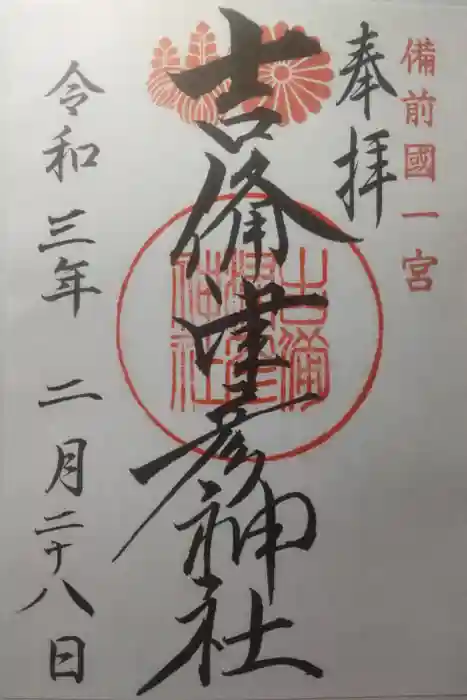 備前國一宮
奉拝
吉備津彦神社
吉備津彦神社
令和三年 二月二十八日